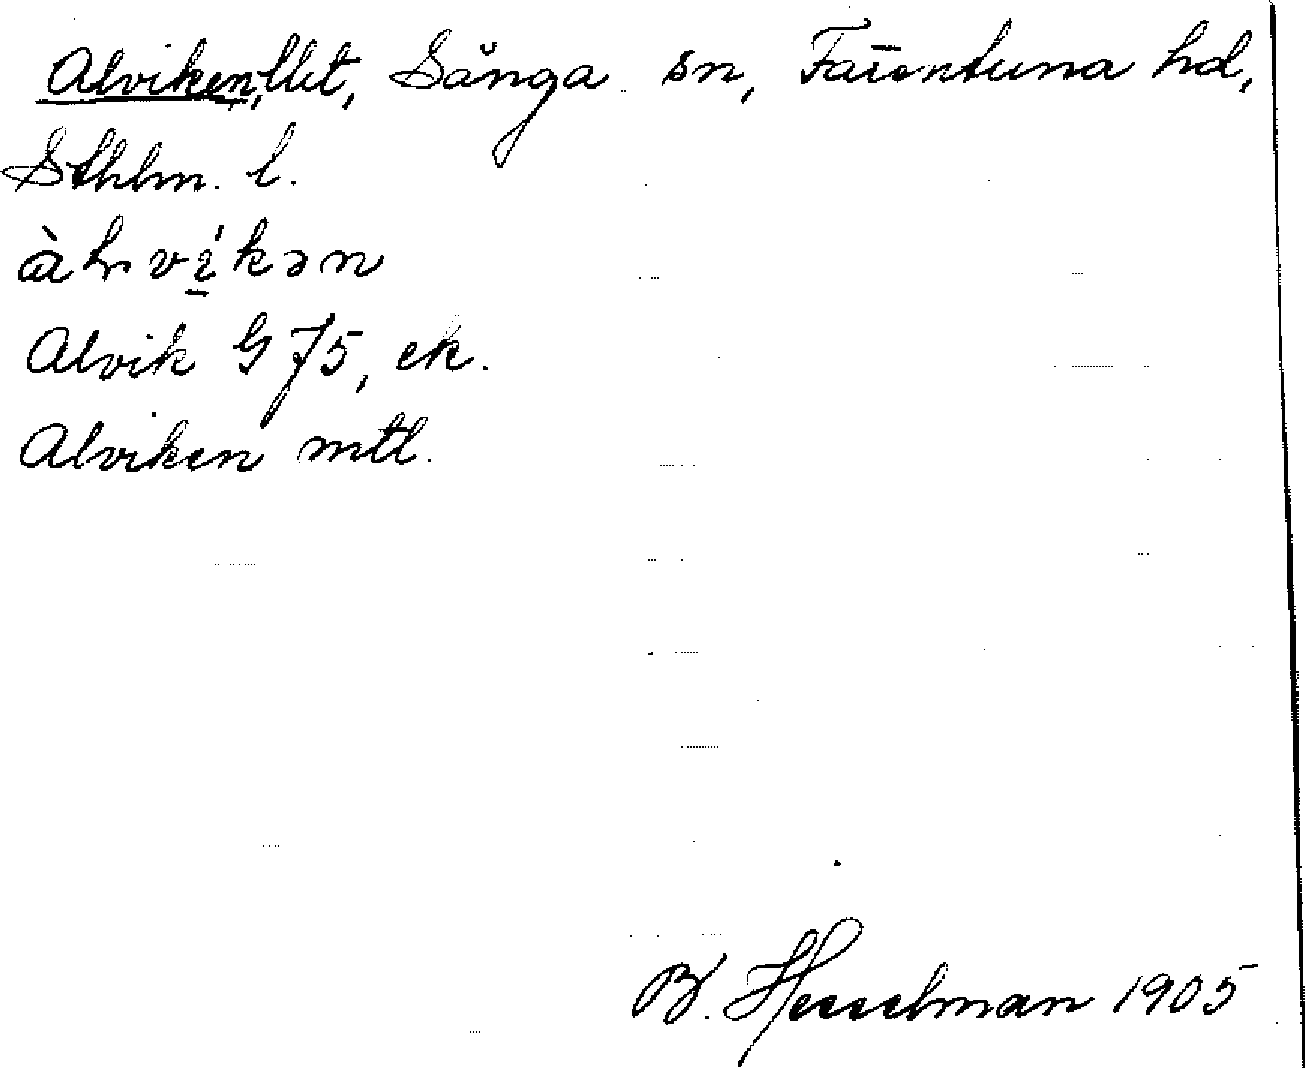 Alviken, llt, Sånga sn, Färentuna hd,
Sthlm. l.
Alvik G 75, ek.
Alviken mtl.
B. Hesselman 1905